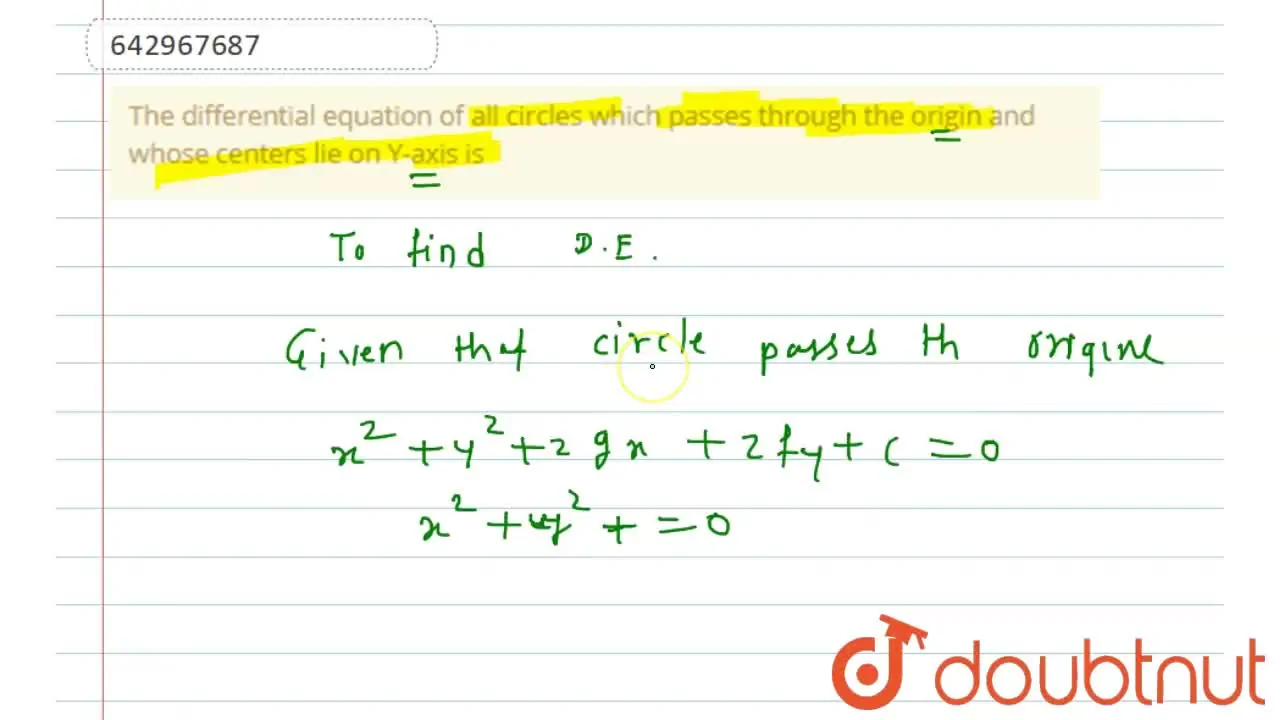 642967687
The differential equation of all circles which passes through the origin and
whose centers lie on Y-axis is
To find D.E.
Given that circle passes th origine
x² + y² + 2gx + 2fy + c = 0
x² + y² + = 0
doubtnut